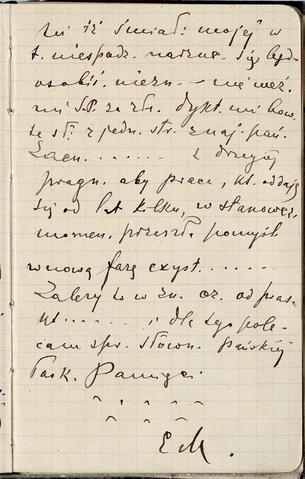 mi iż śmiał: mojej w
t. niespodz. naszne. się być
osobiś. niezn. – nie weź.
mi St. za zł. dykt. mi bow.
te sł: z jedn. str. znaj. pań.
Zacn. . . . . . . . z drugiej
pragn. aby praca, kt. oddaję
się od lat kilku, w stanowcz.
momen. przeszła pomyśl
w nową fazę exyst. . . . . . .
Zależy to w zn. cz. od pras.
kt. . . . . . ; dla tego pole-
cam spr. słown. Pańskiej
Łask. Pamięci
E M.